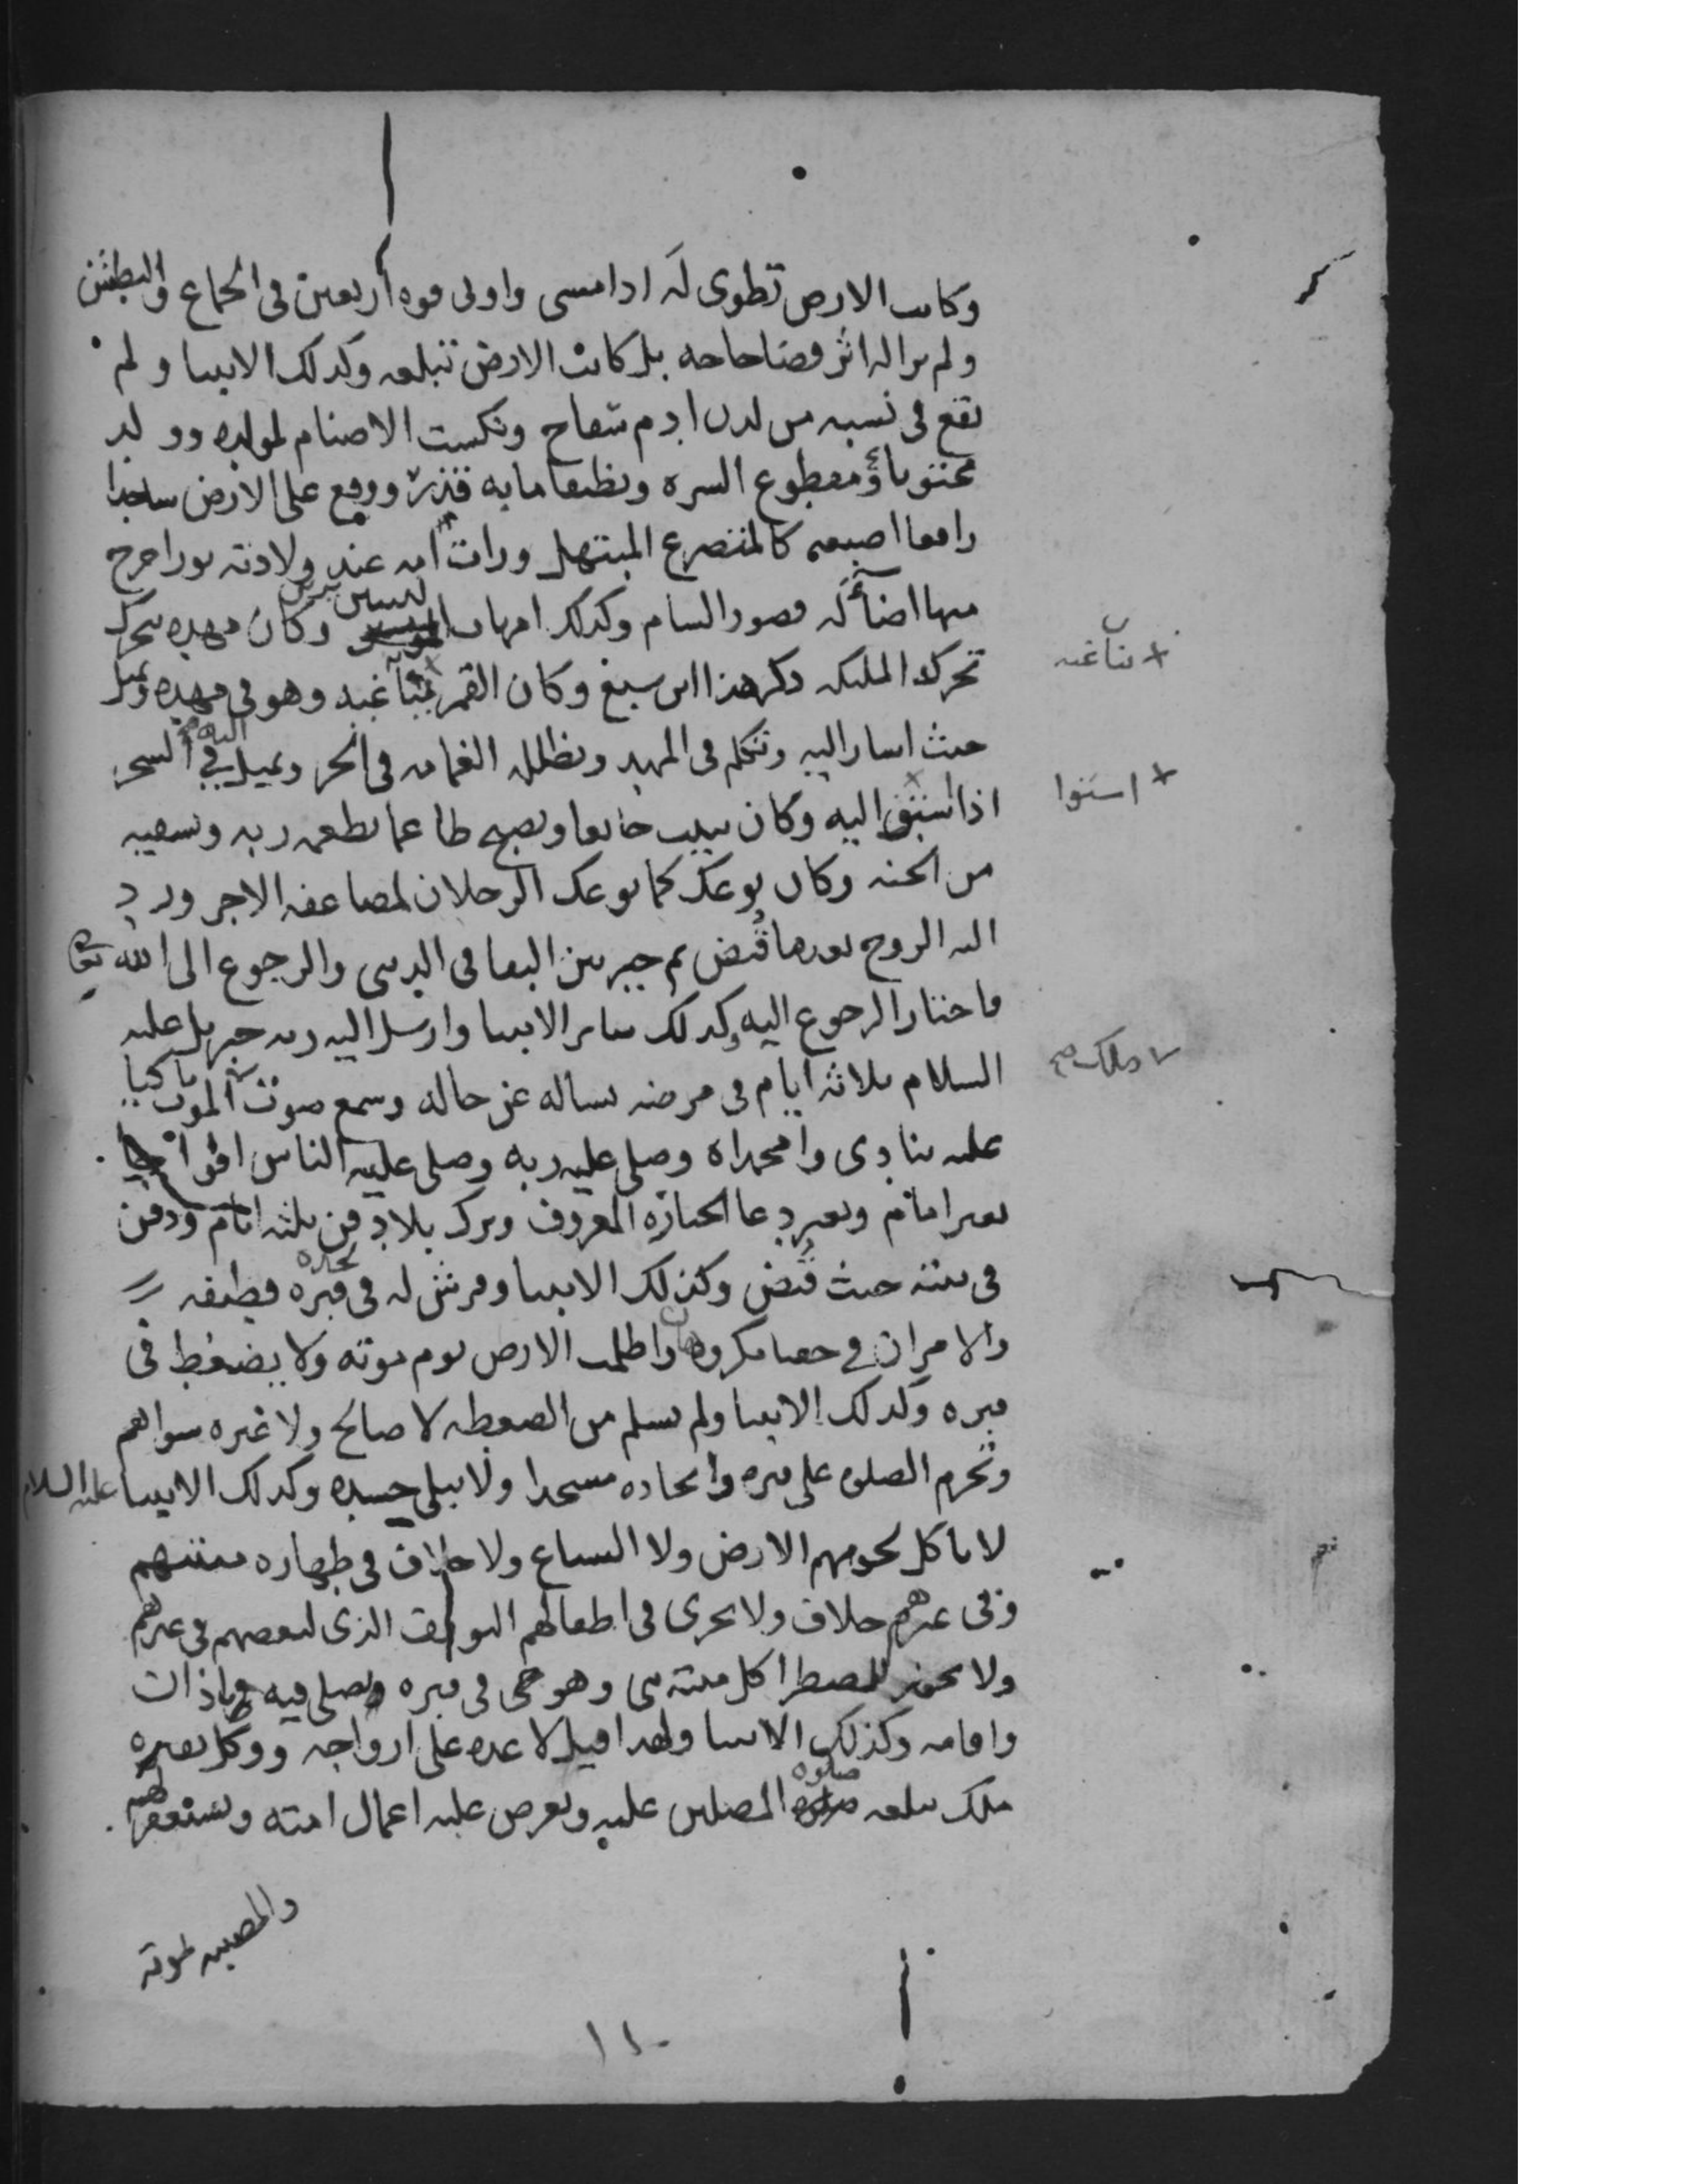 وكانت الارض تطوى له اذا مشى واوتى قوه أربعين فى الجماع والبطش
ولم ير له اثر قضا حاجه بل كانت الارض تبتلعه وكذلك الانبيا ولم
يقع فى نسبه من لدن ادم سفاح ونكست الاصنام لمولده وولد
مختونا ومقطوع السره ونظيفا ما به قذر ووقع على الارض ساجدا
رافعا اصبعه كالمتضرع المبتهل ورات امه عند ولادته نورا خرج
منها اضأ له قصور الشام وكذلك امهات النبيين يرين وكان مهده يتحرك
تحرك الملئكه ذكر هذا ابن سبع وكان القمر يناغيه وهو فى مهده ويميل
حيث اشار اليه وتكلم فى المهد وتظلله الغمامه فى الحر ويميل اليه فئ الشجر
اذا استبق اليه وكان يبيت جايعا ويصبح طاعما يطعمه ربه ويسقيه
من الجنه وكان يوعك كما يوعك الرجلان لمضاعفه الاجر ورد
اليه الروح بعدما قُبض ثم خير بين البقا فى الدنيى والرجوع الى الله تعالى
فاختار الرجوع اليه وكذلك ساير الانبيا وارسل اليه ربه جبريل عليه
السلام ثلاثه ايام فى مرضه يساله عن حاله وسمع صوت الموت باكيا
عليه ينادى وامحمداه وصلى عليه ربه وصلى عليه الناس افواجا
بغير امام وبغير دعا الجنازه المعروف وترك بلا دفن ثلثه ايام ودفن
فى بيته حيث قُبض وكذلك الانبيا وفرش له فى لحده قبره قطيفه
والامران فى حقنا مكروهان واظلمت الارض يوم موته ولا يضغط فى
قبره وكذلك الانبيا ولم يسلم من الضغطه لا صالح ولا غيره سواهم
وتحرم الصلوه على قبره واتخاذه مسجدا ولا يبلى جسده وكذلك الانبيا عليه السلام
لا تاكل لحومهم الارض ولا السباع ولا خلاف فى طهاره ميتتهم
وفى غيرهم خلاف ولا يجرى فى اطفالهم التوقف الذى لبعضهم فى غيرهم
ولا يجوز للمضطر اكل ميتة نبى وهو حى فى قبره ويصلى فيه باذان
واقامه وكذلك الانبيا ولهذا قيل لا عده على ازواجه ووكل بقبره
ملك يبلغه صلوه المصلين عليه وتعرض عليه اعمال امته ويستغفر لهم
والمصيبه لموته
+ يناغيه
+ استبوا
ملك صح
١١٠